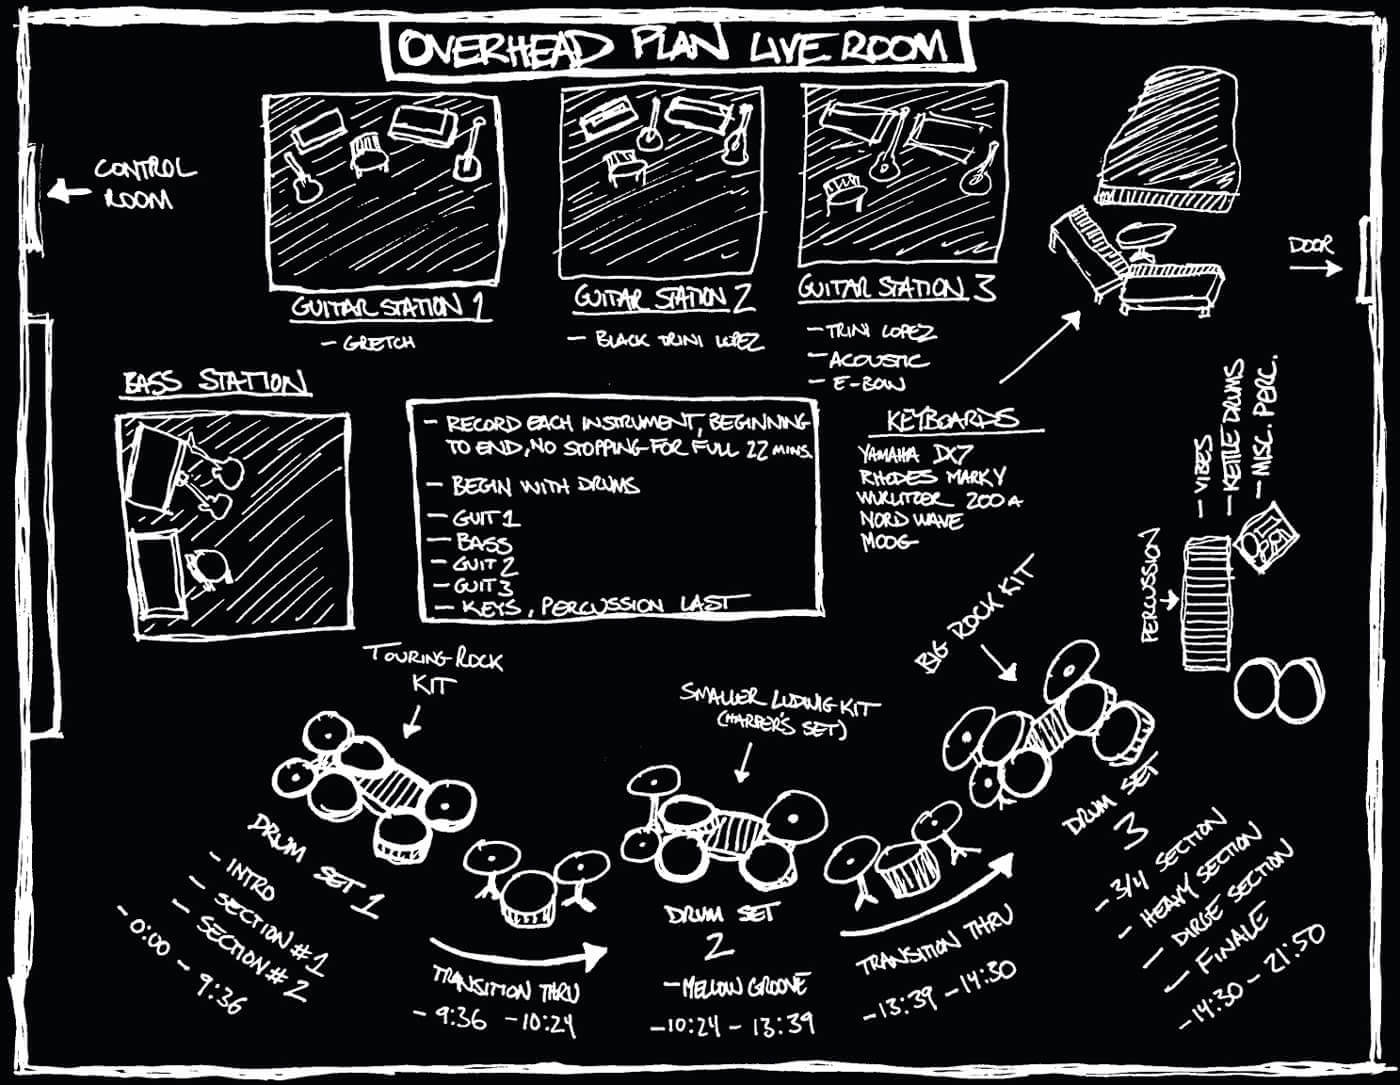 OVERHEAD PLAN LIVE ROOM
CONTROL
ROOM
GUITAR STATION 1
- GRETCH
GUITAR STATION 2
- BLACK TRINI LOPEZ
GUITAR STATION 3
- TRINI LOPEZ
- ACOUSTIC
- E-BOW
DOOR
BASS STATION
- RECORD EACH INSTRUMENT, BEGINNING
TO END, NO STOPPING FOR FULL 22 MINS.
- BEGIN WITH DRUMS
- GUIT 1
- BASS
- GUIT 2
- GUIT 3
- KEYS, PERCUSSION LAST
KEYBOARDS
YAMAHA DX7
RHODES MARK V
WURLITZER 200A
NORD WAVE
MOOG
PERCUSSION
- VIBES
- KETTLE DRUMS
- MISC. PERC.
TOURING ROCK
KIT
SMALLER LUDWIG KIT
(HARPER'S SET)
BIG ROCK KIT
DRUM SET 1
- INTRO
- SECTION #1
- SECTION #2
- 0:00 - 9:36
TRANSITION THRU
- 9:36 - 10:24
DRUM SET
2
- MELLOW GROOVE
- 10:24 - 13:39
TRANSITION THRU
- 13:39 - 14:30
DRUM SET
3
- 3/4 SECTION
- HEAVY SECTION
- DIRGE SECTION
- FINALE
- 14:30 - 21:50